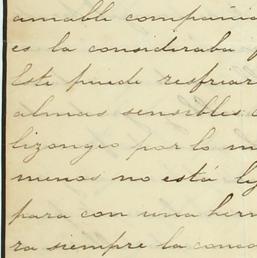 amable compañia
es la consideraba
Este puede resfriar
almas sensibles
lizongeo por lo m
menos no está
para con una her
ra siempre la cono